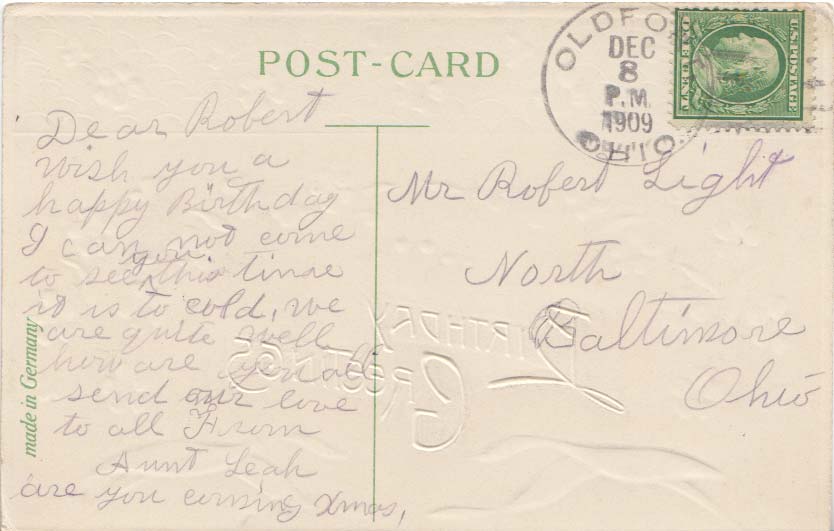 POST-CARD
OLDFO
DEC
8
P.M.
1909
OHIO.
U.S. POSTAGE
ONE CENT
Dear Robert
wish you a
happy Birthday
I can not come
to see you this time
it is to cold, we
are quite well
how are you all
send our love
to all From
Aunt Leah
are you coming Xmas,
Mr Robert Light
North
Baltimore
Ohio
made in Germany
BIRTHDAY
GREETINGS